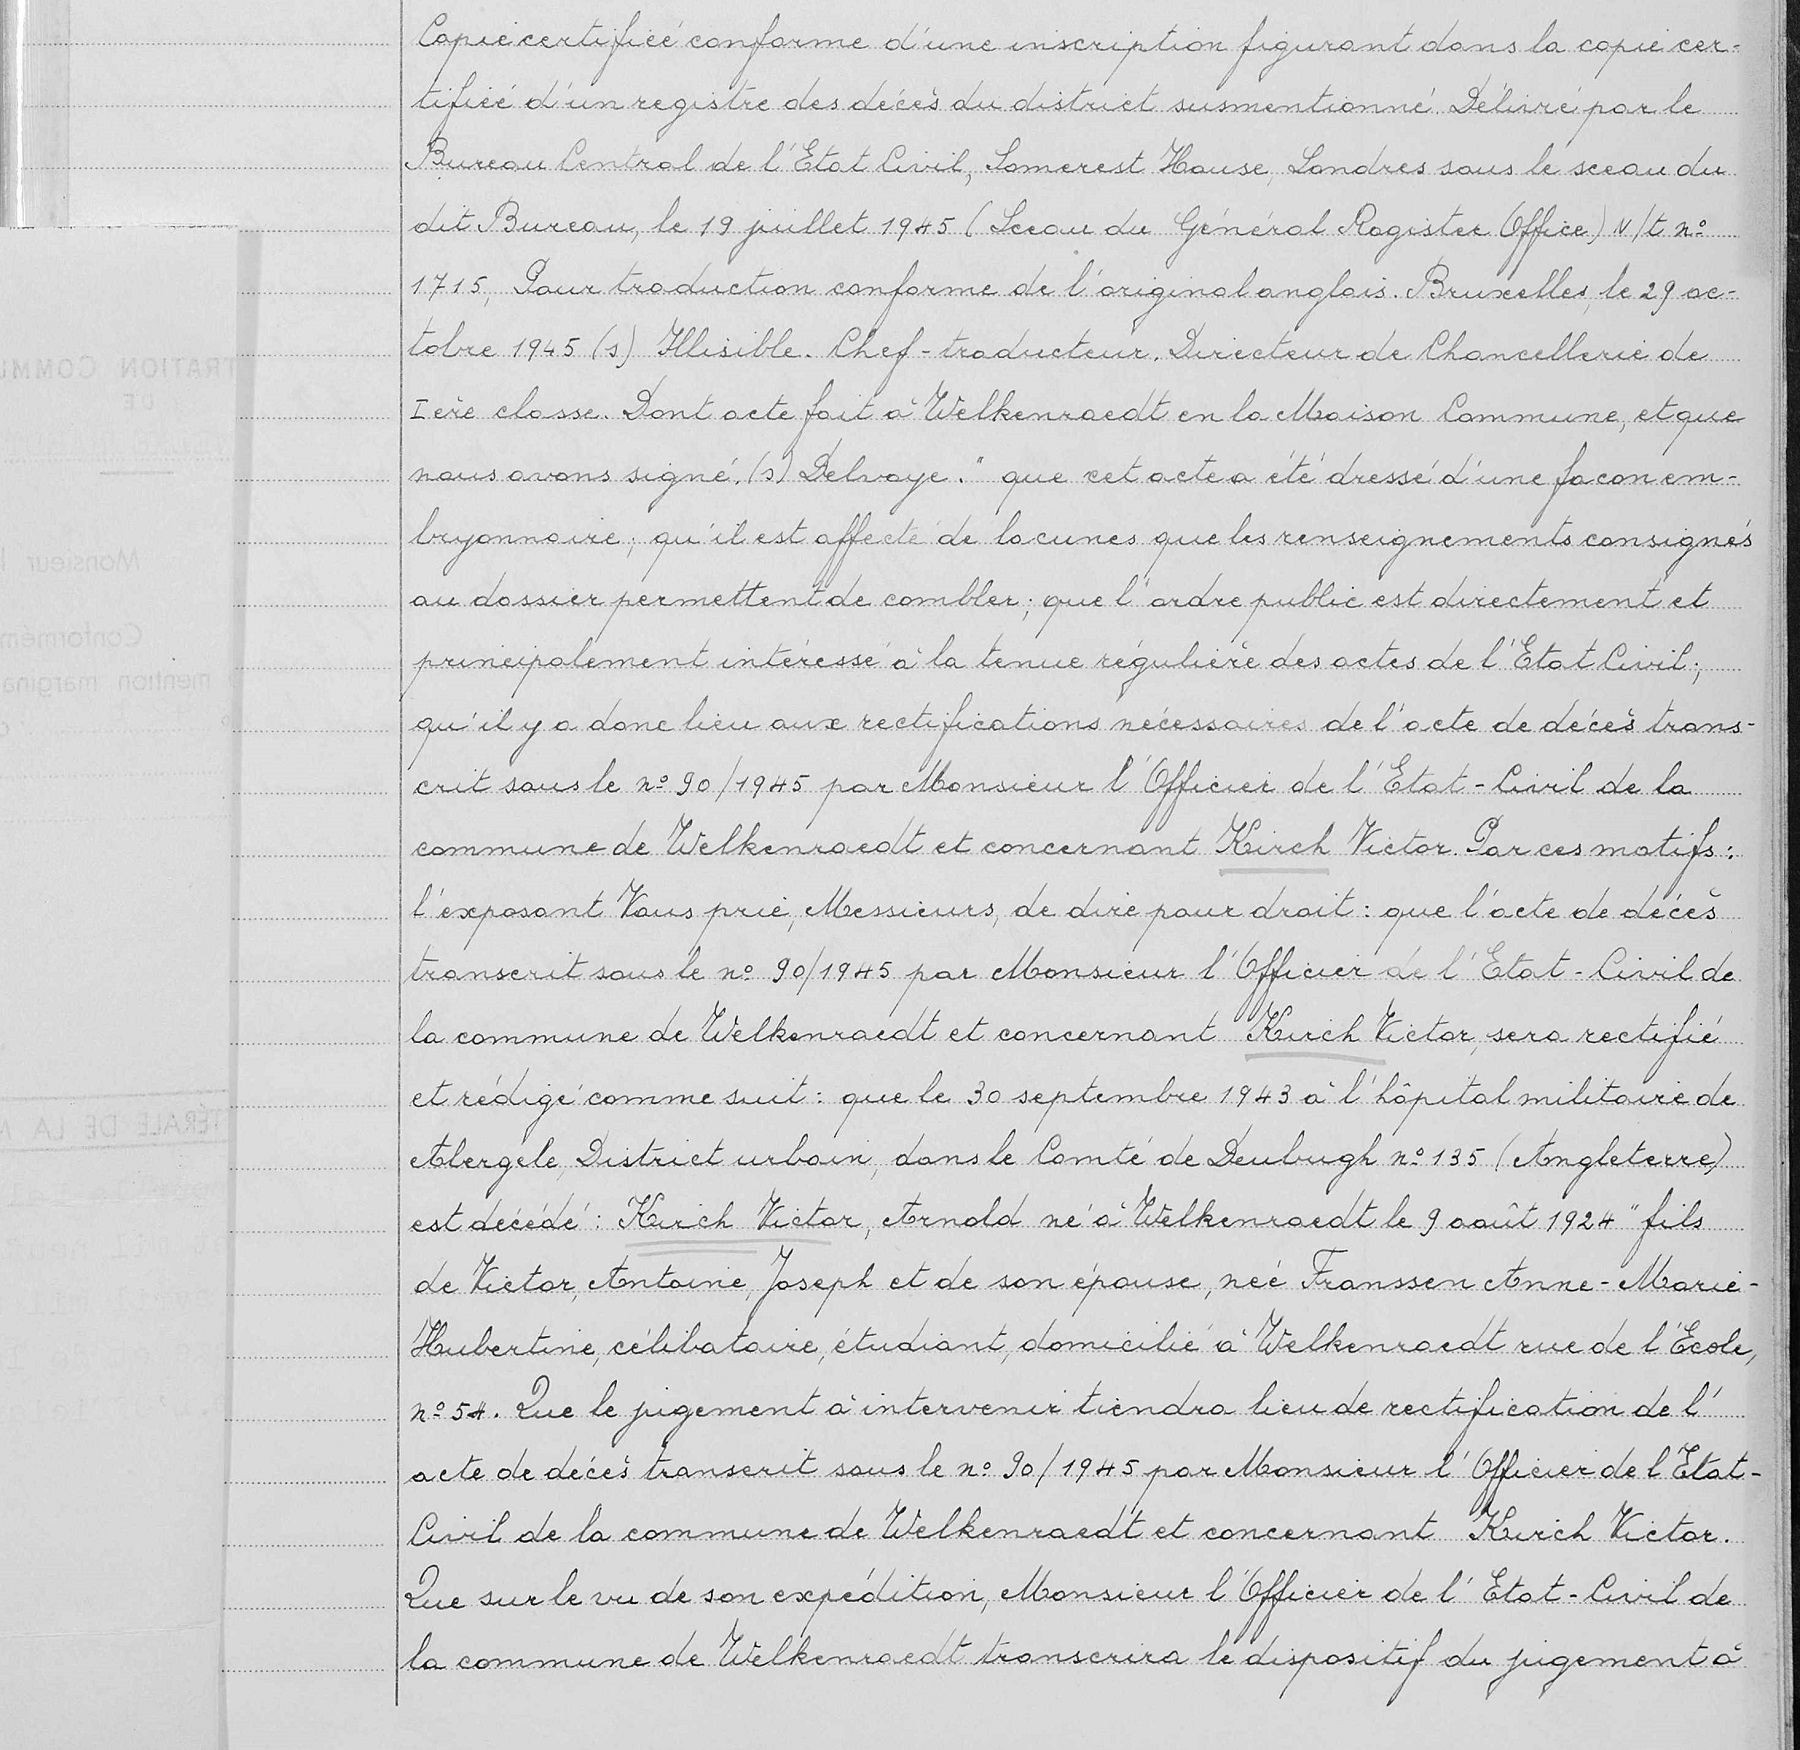 Copie certifiée conforme d'une inscription figurant dans la copie cer-
tifiée d'un registre des décès du district susmentionné. Délivré par le
Bureau Central de l'Etat Civil, Somerest House, Londres sous le sceau du
dit Bureau, le 19 juillet 1945 (Sceau du Général Register Office) N/t no
1715, Pour traduction conforme de l'original anglais. Bruxelles, le 29 oc-
tobre 1945 (s) Illisible. Chef-traducteur. Directeur de Chancellerie de
Ière classe. Dont acte fait à Welkenraedt en la Maison Commune, et que
nous avons signé. (s) Delvoye." que cet acte a été dressé d'une facon em-
bryonnaire; qu'il est affecté de lacunes que les renseignements consignés
au dossier permettent de combler; que l'ordre public est directement et
principalement intéressé à la tenue régulière des actes de l'Etat Civil;
qu'il y a donc lieu aux rectifications nécessaires de l'acte de décès trans-
crit sous le no 90/1945 par Monsieur l'Officier de l'Etat-Civil de la
commune de Welkenraedt et concernant Kirch Victor. Par ces motifs:
l'exposant Vous prie, Messieurs, de dire pour droit: que l'acte de décès
transcrit sous le no 90/1945 par Monsieur l'Officier de l'Etat-Civil de
la commune de Welkenraedt et concernant Kirch Victor, sera rectifié
et rédigé comme suit: que le 30 septembre 1943 à l'hôpital militaire de
Abergele, District urbain, dans le Comté de Deubugh no 135 (Angleterre)
est décédé: Kirch Victor, Arnold né à Welkenraedt le 9 août 1924 " fils
de Victor, Antoine, Joseph et de son épouse, née Franssen Anne-Marie-
Hubertine, célibataire, étudiant, domicilié à Welkenraedt rue de l'Ecole,
no 54. Que le jugement à intervenir tiendra lieu de rectification de l'
acte de décès transcrit sous le no 90/1945 par Monsieur l'Officier de l'Etat-
Civil de la commune de Welkenraedt et concernant Kirch Victor.
Que sur le vu de son expédition, Monsieur l'Officier de l'Etat-Civil de
la commune de Welkenraedt transcrira le dispositif du jugement à